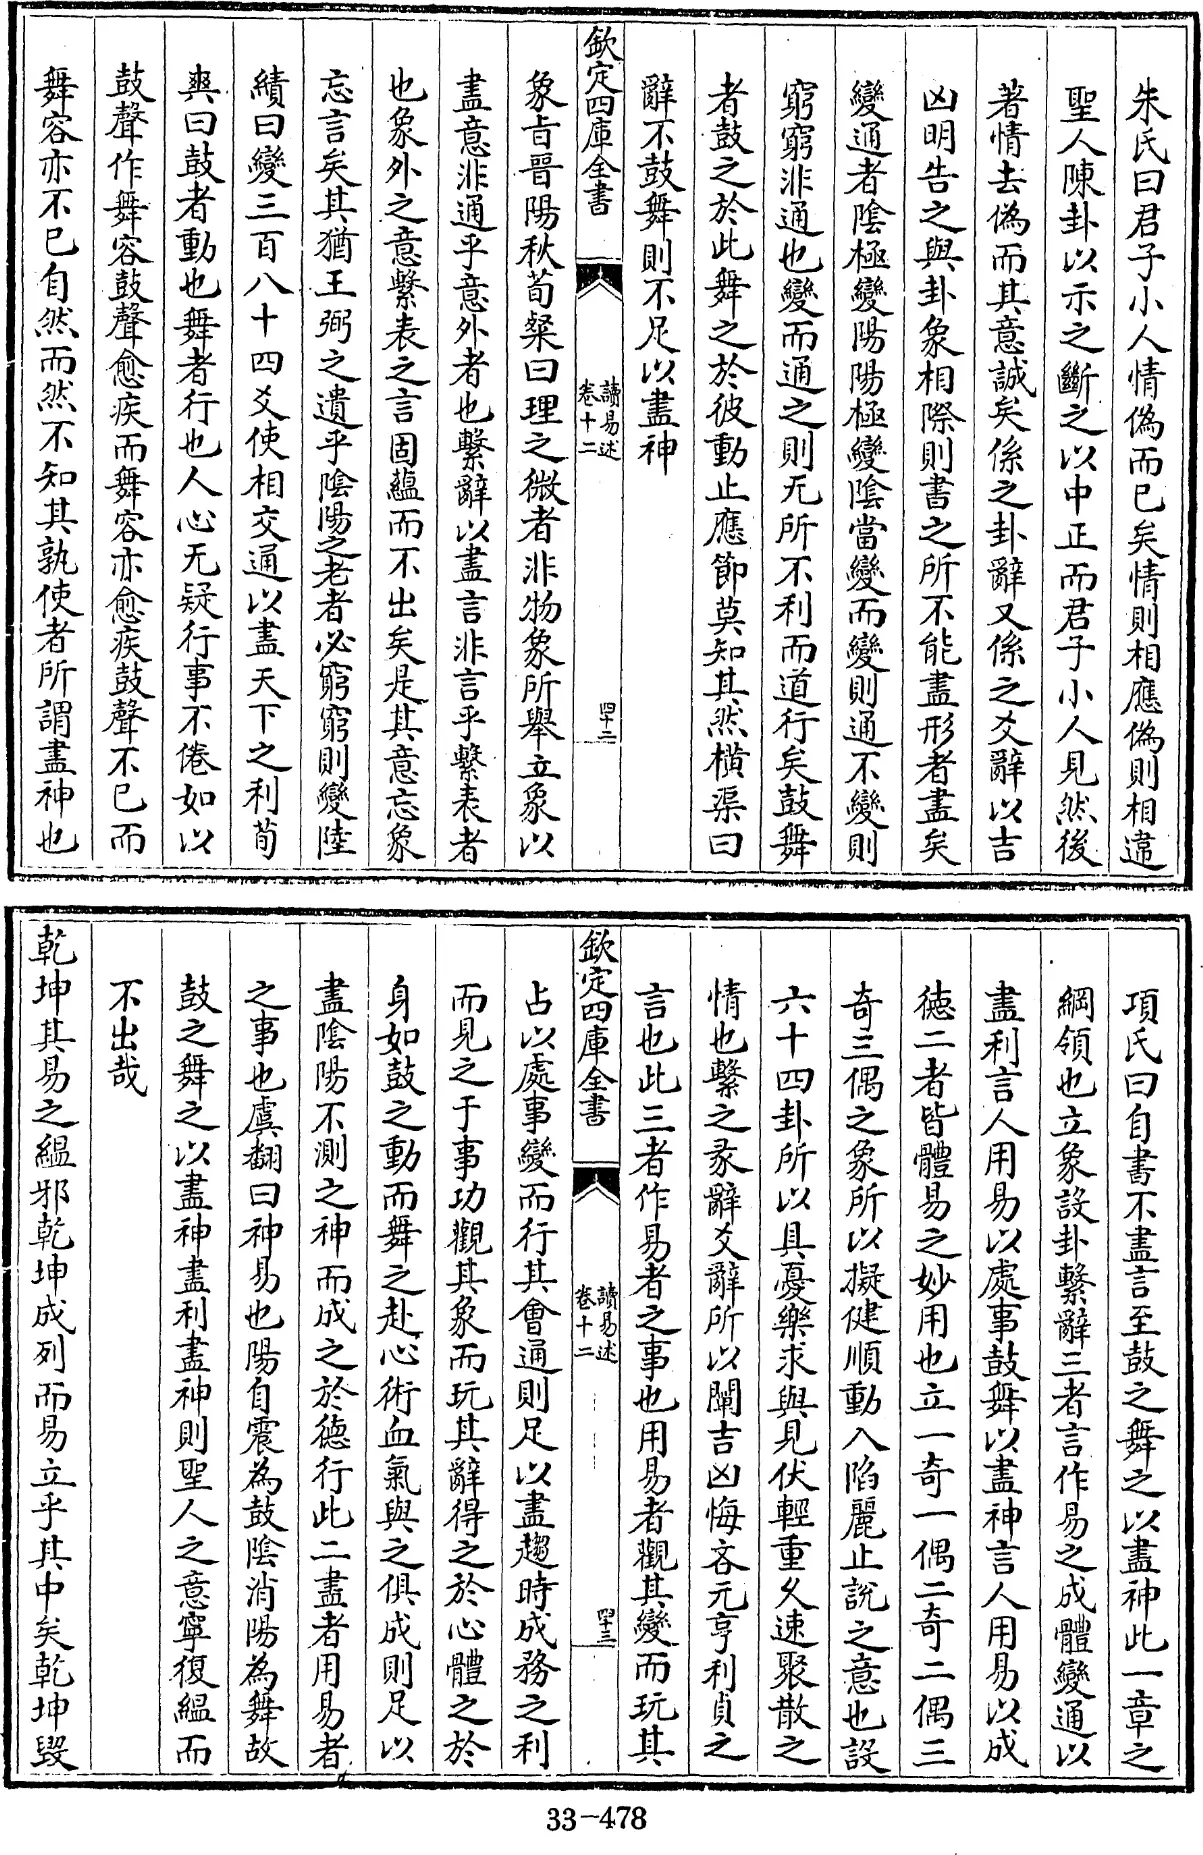 朱氏曰君子小人情偽而已矣情則相應偽則相違
聖人陳卦以示之斷之以中正而君子小人見然後
著情去偽而其意誠矣係之卦辭又係之爻辭以吉
凶明告之與卦象相際則書之所不能盡形者盡矣
變通者陰極變陽陽極變陰當變而變則通不變則
窮窮非通也變而通之則无所不利而道行矣鼓舞
者鼓之於此舞之於彼動止應節莫知其然橫渠曰
辭不鼓舞則不足以盡神
欽定四庫全書
讀易述
卷十二
四十二
象㫖晉陽秋荀粲曰理之微者非物象所舉立象以
盡意非通乎意外者也繫辭以盡言非言乎繫表者
也象外之意繫表之言固蘊而不出矣是其意忘象
忘言矣其猶王弼之遺乎陰陽之老者必窮窮則變陸
績曰變三百八十四爻使相交通以盡天下之利荀
爽曰鼓者動也舞者行也人心无疑行事不倦如以
鼓聲作舞容鼓聲愈疾而舞容亦愈疾鼓聲不已而
舞容亦不已自然而然不知其孰使者所謂盡神也
項氏曰自書不盡言至鼓之舞之以盡神此一章之
綱領也立象設卦繫辭三者言作易之成體變通以
盡利言人用易以處事鼓舞以盡神言人用易以成
德二者皆體易之妙用也立一奇一偶二奇二偶三
奇三偶之象所以擬健順動入陷麗止說之意也設
六十四卦所以具憂樂求與見伏輕重久速聚散之
情也繫之彖辭爻辭所以闡吉凶悔吝元亨利貞之
言也此三者作易者之事也用易者觀其變而玩其
欽定四庫全書
讀易述
卷十二
四十三
占以處事變而行其會通則足以盡趨時成務之利
而見之于事功觀其象而玩其辭得之於心體之於
身如鼓之動而舞之赴心術血氣與之俱成則足以
盡陰陽不測之神而成之於德行此二盡者用易者
之事也虞翻曰神易也陽自震為鼓陰消陽為舞故
鼓之舞之以盡神盡利盡神則聖人之意寧復縕而
不出哉
乾坤其易之縕邪乾坤成列而易立乎其中矣乾坤毀
33-478